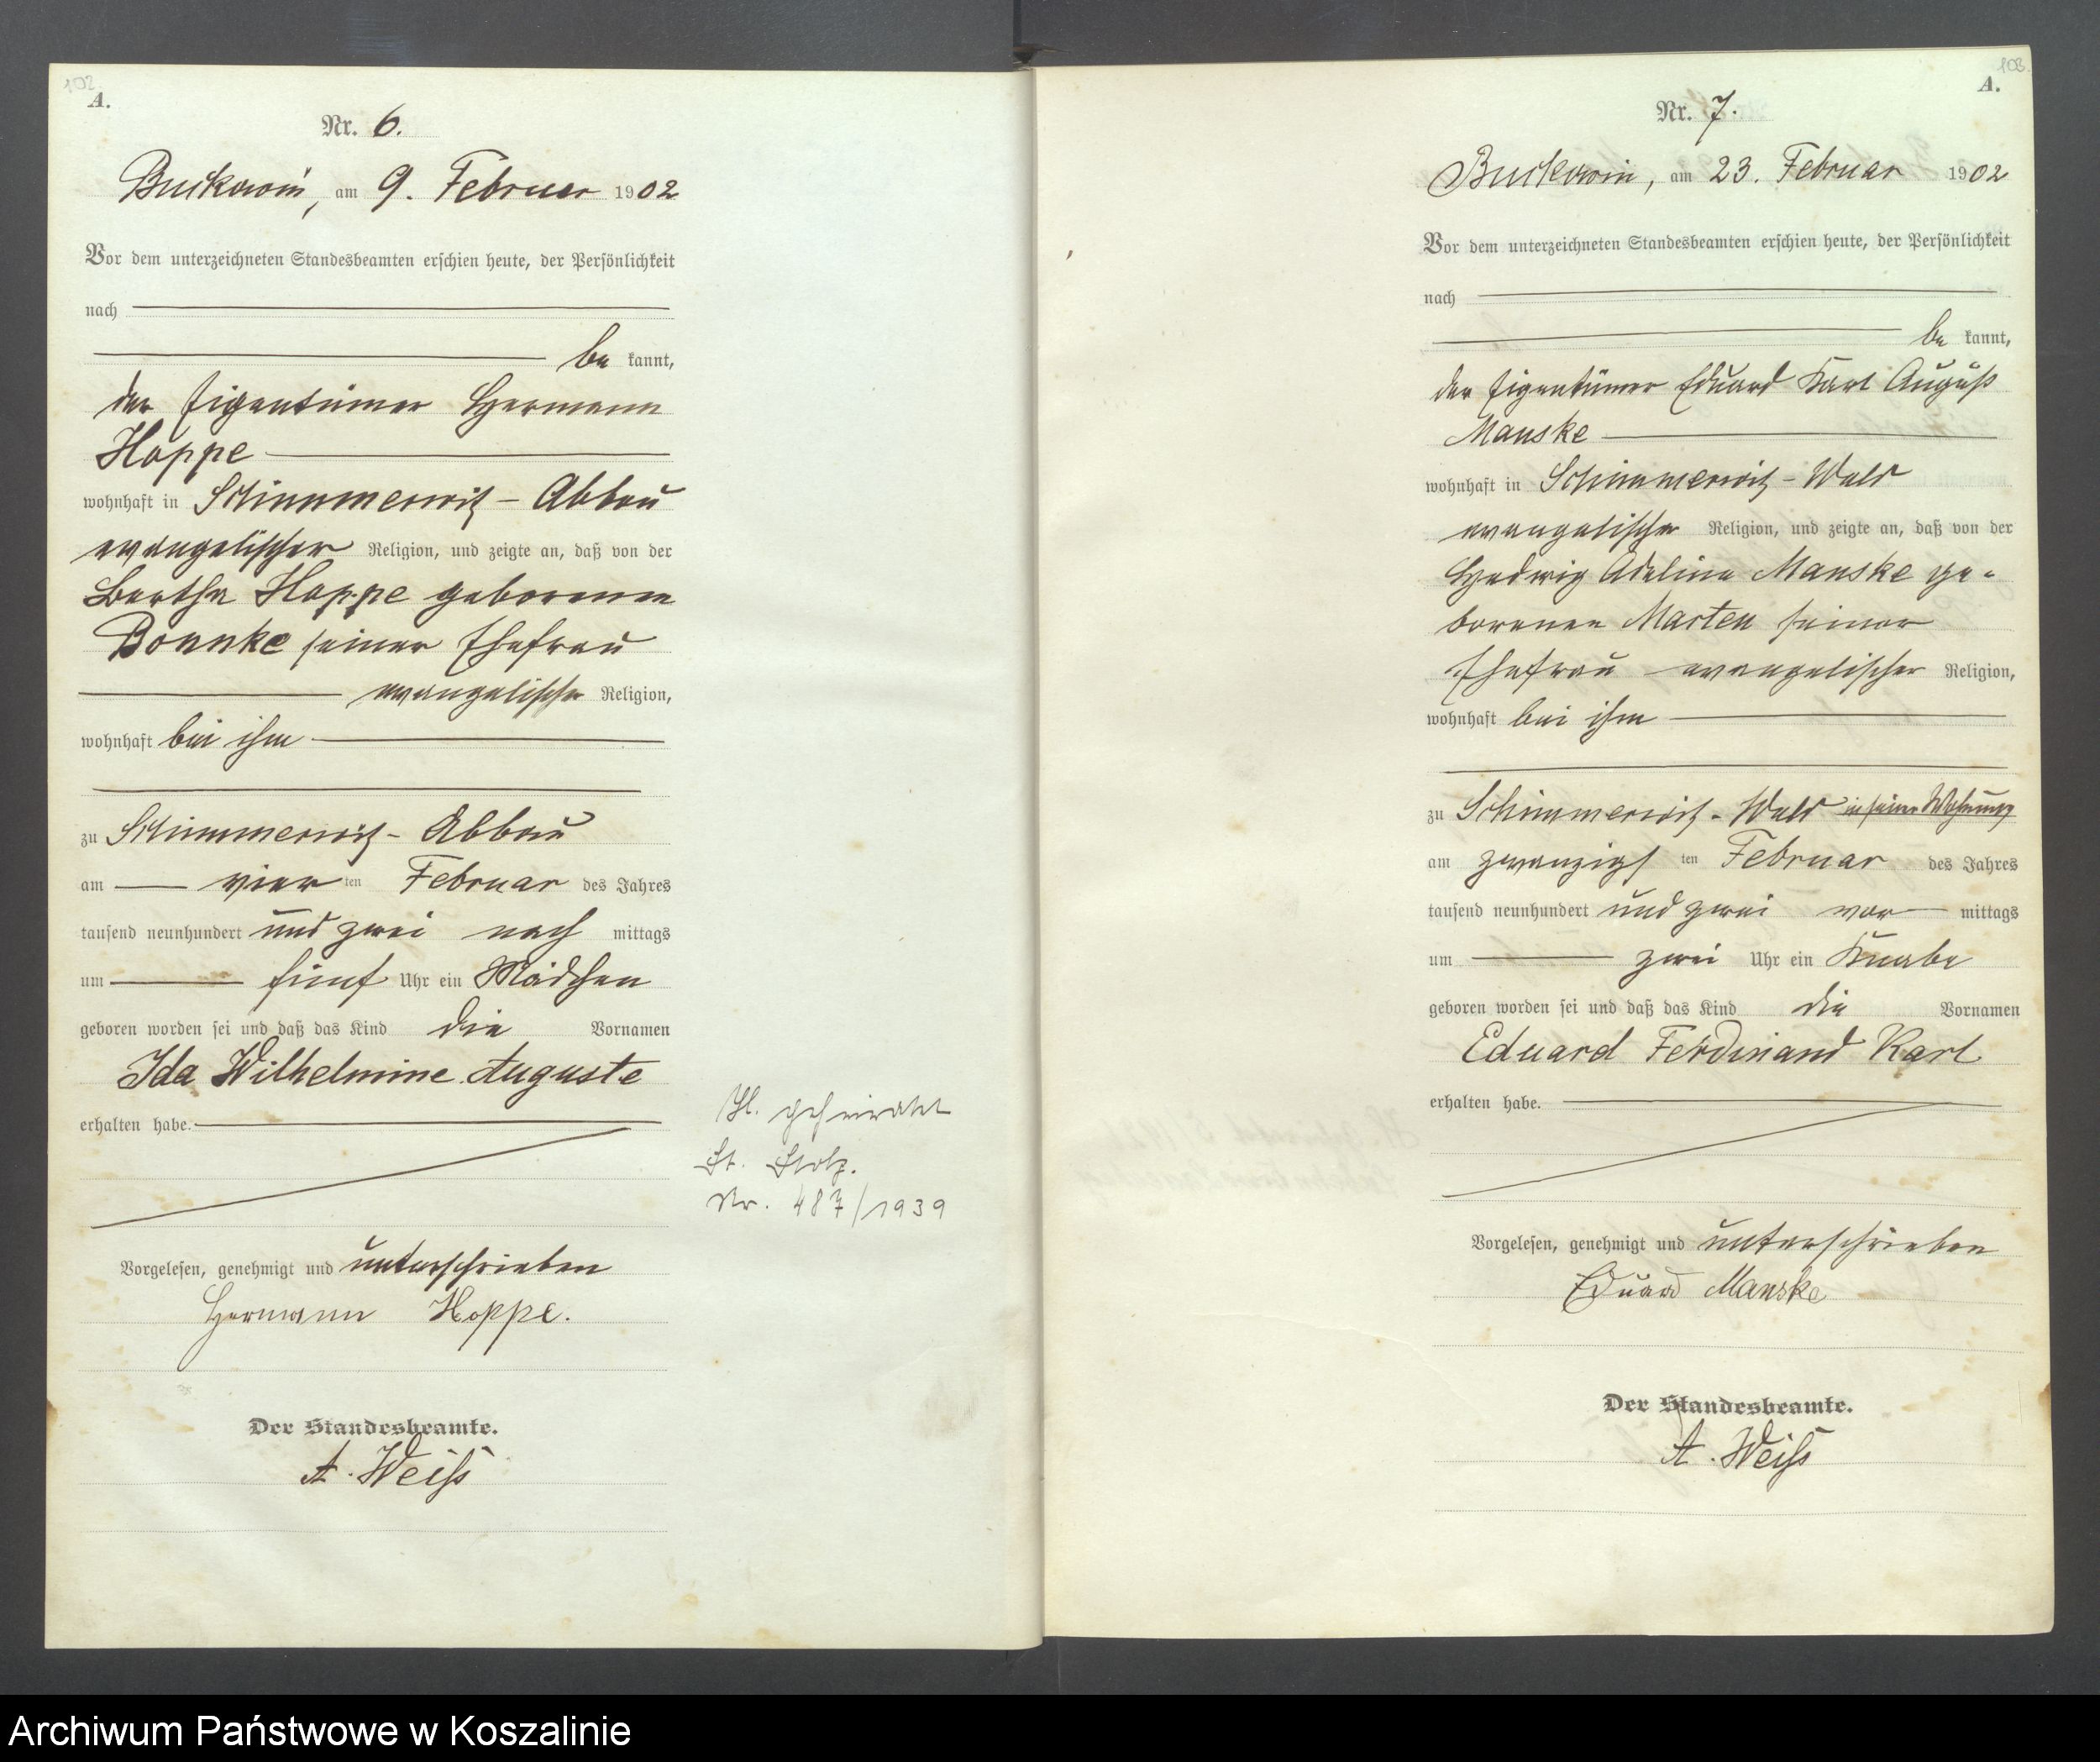 102.
A.
Nr. 6.
Buckowin, am 9. Februar 1902
Vor dem unterzeichneten Standesbeamten erschien heute, der Persönlichkeit
nach
be kannt,
der Eigentümer Hermann
Hoppe
wohnhaft in Schimmerwitz - Abbau
evangelischer Religion, und zeigte an, daß von der
Bertha Hoppe geborenen
Bonnke seiner Ehefrau
evangelischer Religion,
wohnhaft bei ihm
zu Schimmerwitz - Abbau
am vier ten Februar des Jahres
tausend neunhundert und zwei nach mittags
um fünf Uhr ein Mädchen
geboren worden sei und daß das Kind die Vornamen
Ida Wilhelmine Auguste
erhalten habe.
Vorgelesen, genehmigt und unterschrieben
Hermann Hoppe.
Der Standesbeamte.
A. Weiß
geheiratet
St. Stolp.
Nr. 487/1939
103.
A.
Nr. 7.
Buckowin, am 23. Februar 1902
Vor dem unterzeichneten Standesbeamten erschien heute, der Persönlichkeit
nach
be kannt,
der Eigentümer Eduard Karl August
Manske
wohnhaft in Schimmerwitz - Wald
evangelischer Religion, und zeigte an, daß von der
Hedwig Adeline Manske ge-
borenen Marten seiner
Ehefrau evangelischer Religion,
wohnhaft bei ihm
zu Schimmerwitz - Wald in seiner Wohnung
am zwanzigs ten Februar des Jahres
tausend neunhundert und zwei vor mittags
um zwei Uhr ein Knabe
geboren worden sei und daß das Kind die Vornamen
Eduard Ferdinand Karl
erhalten habe.
Vorgelesen, genehmigt und unterschrieben
Eduard Manske
Der Standesbeamte.
A. Weiß
Archiwum Państwowe w Koszalinie